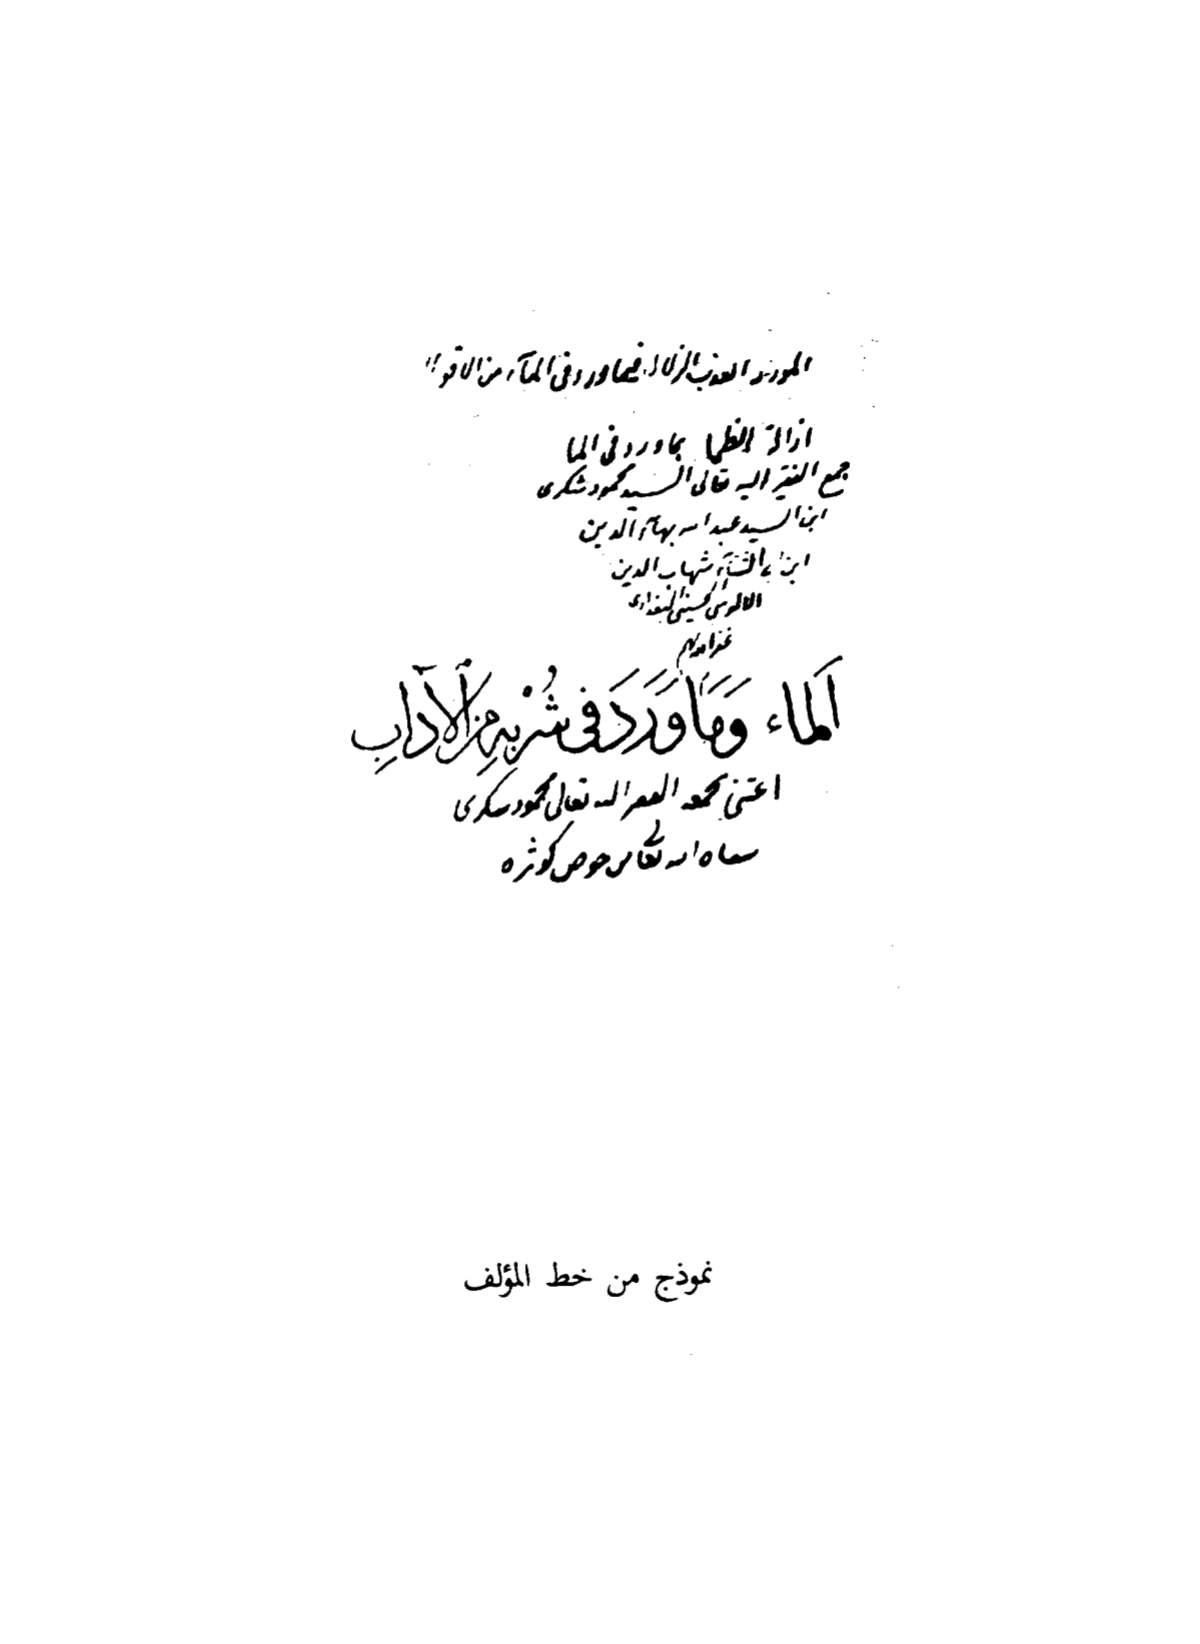 المورد العذب الزلال فيما ورد في المآء من الاقوال
ازالة الظما بما ورد في الما
جمع الفقير اليه تعالى السيد محمود شكرى
ابن السيد عبد الله بهآء الدين
ابن ابي الثنآء شهاب الدين
الالوسي الحسيني البغدادى
غفر الله لهم
اَلماء وَمَا وَرَدَ فى شُرْبِهِ مِنَ الآدابِ
اعتنى بجمعه الفقير اليه تعالى محمود شكرى
سقاه الله تعالى من حوض كوثره
نموذج من خط المؤلف